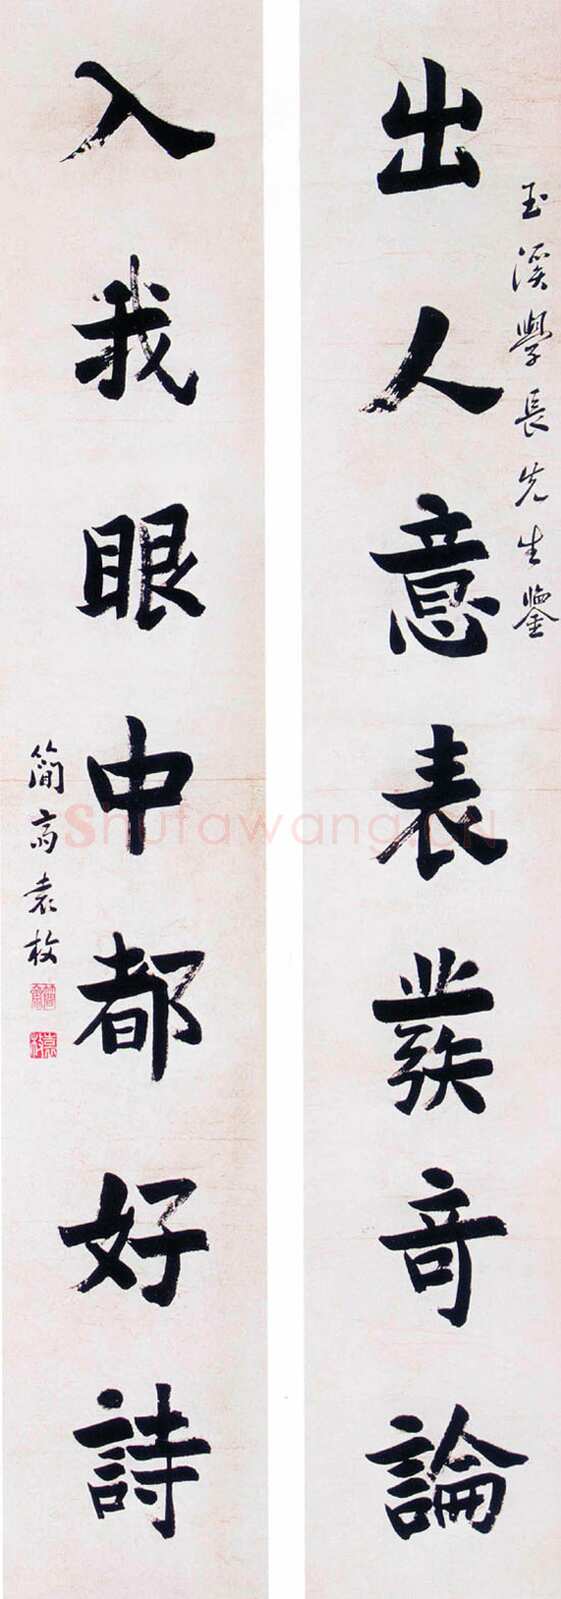 玉溪學長先生鑒
出人意表發竒論
入我眼中都好詩
簡齋袁枚
Shufawang.CN